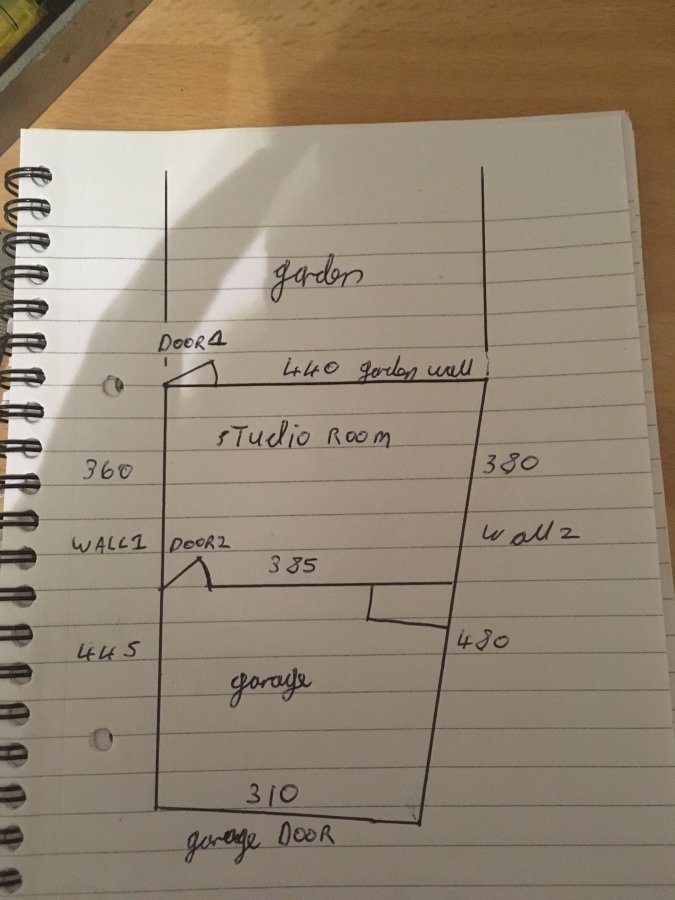 garden
DOOR1
440 garden wall
sTudio ROOM
360
380
WALL1
DOOR2
385
Wall2
445
480
garage
310
garage DOOR